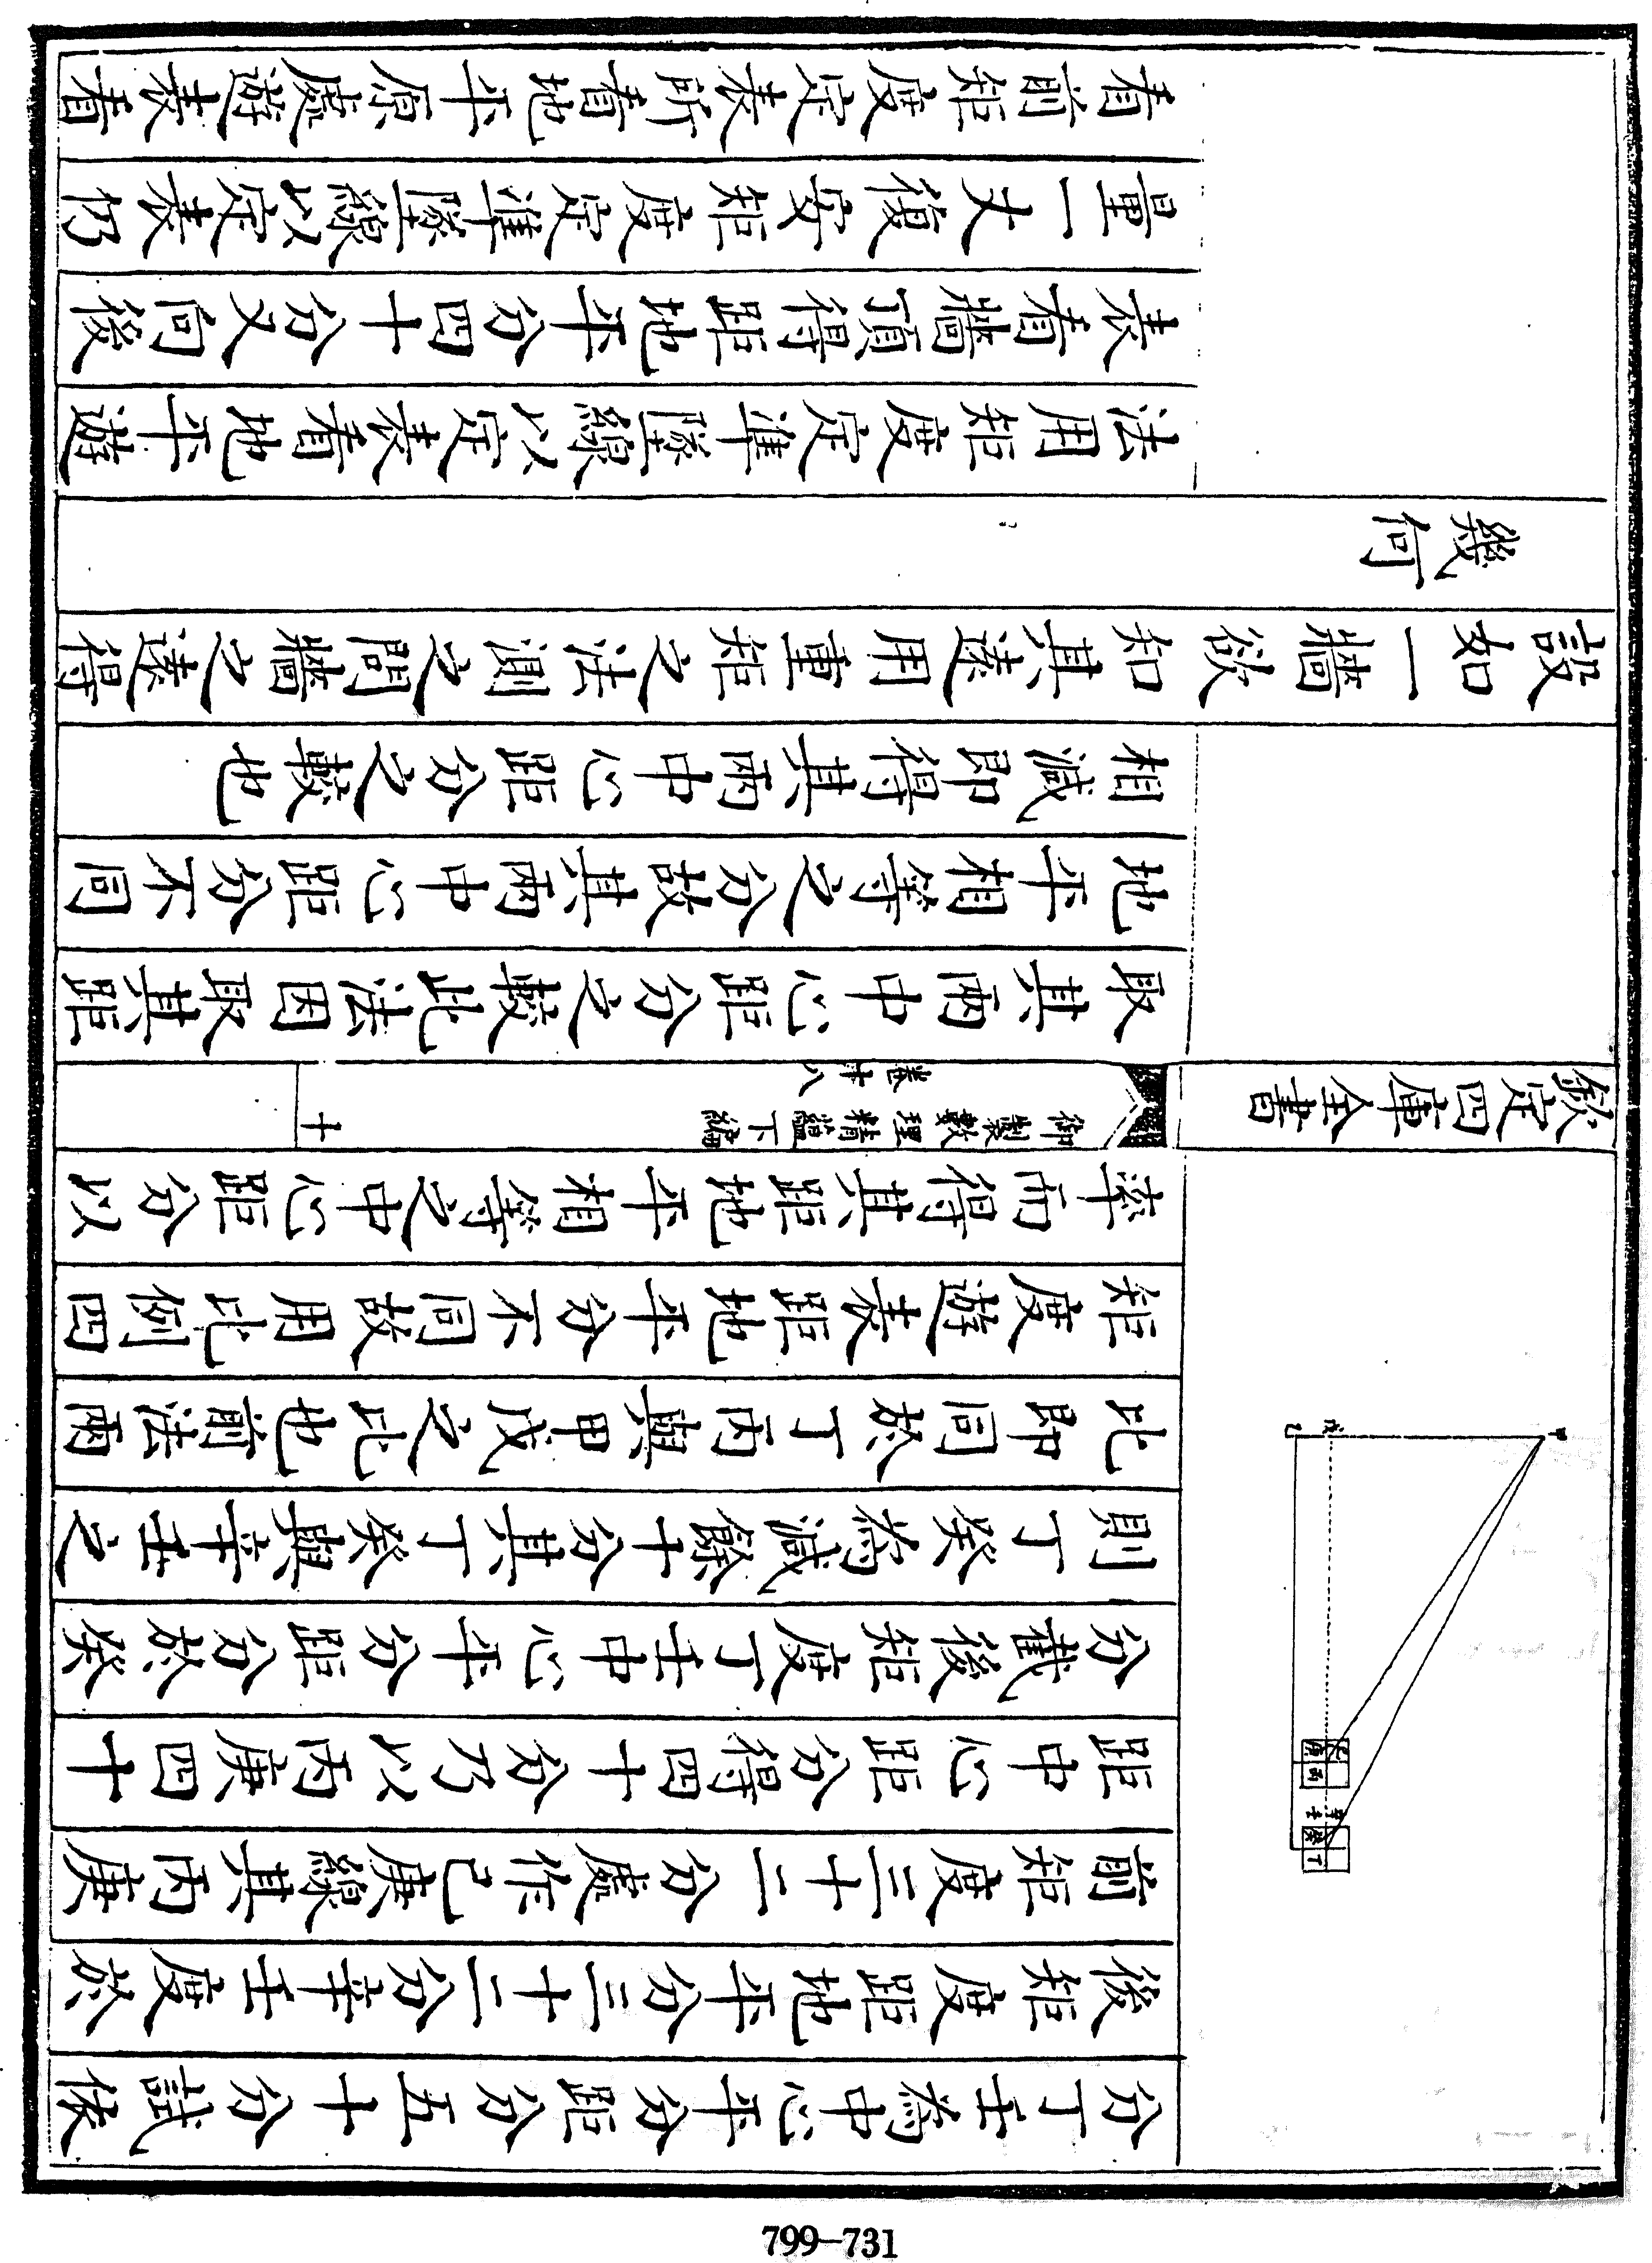 分丁壬為中心平分距分五十分試依
後矩度距地平分三十二分辛壬度於
前矩度三十二分處作己庚線其丙庚
距中心距分得四十分乃以丙庚四十
分截後矩度丁壬中心平分距分於癸
則丁癸為減餘十分其丁癸與辛壬之
比即同於丁丙與甲戊之比也前法兩
矩度遊表距地平分不同故用比例四
率而得其距地平相等之中心距分以
甲
戊
乙
己
庚
丙
辛
壬
癸
丁
欽定四庫全書
御製數理精蘊下編
卷十八
十
取其兩中心距分之較此法因取其距
地平相等之分故其兩中心距分不同
相減即得其兩中心距分之較也
設如一牆欲知其遠用重矩之法測之問牆之遠得
幾何
法用矩度定準墜線以定表看地平遊
表看牆頂得距地平分四十分又向後
量一丈復安矩度定準墜線以定表仍
看前矩度定表所看地平原處遊表看
799-731